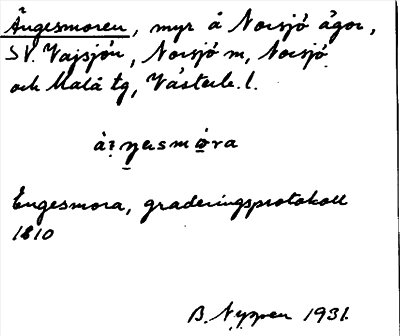 Ängesmoren, myr å Norsjö ägor,
SV. Vajsjön, Norsjö sn, Norsjö
och Malå tg, Västerb. l.
Engesmora, graderingsprotokoll
1810
B. Nyman 1931.